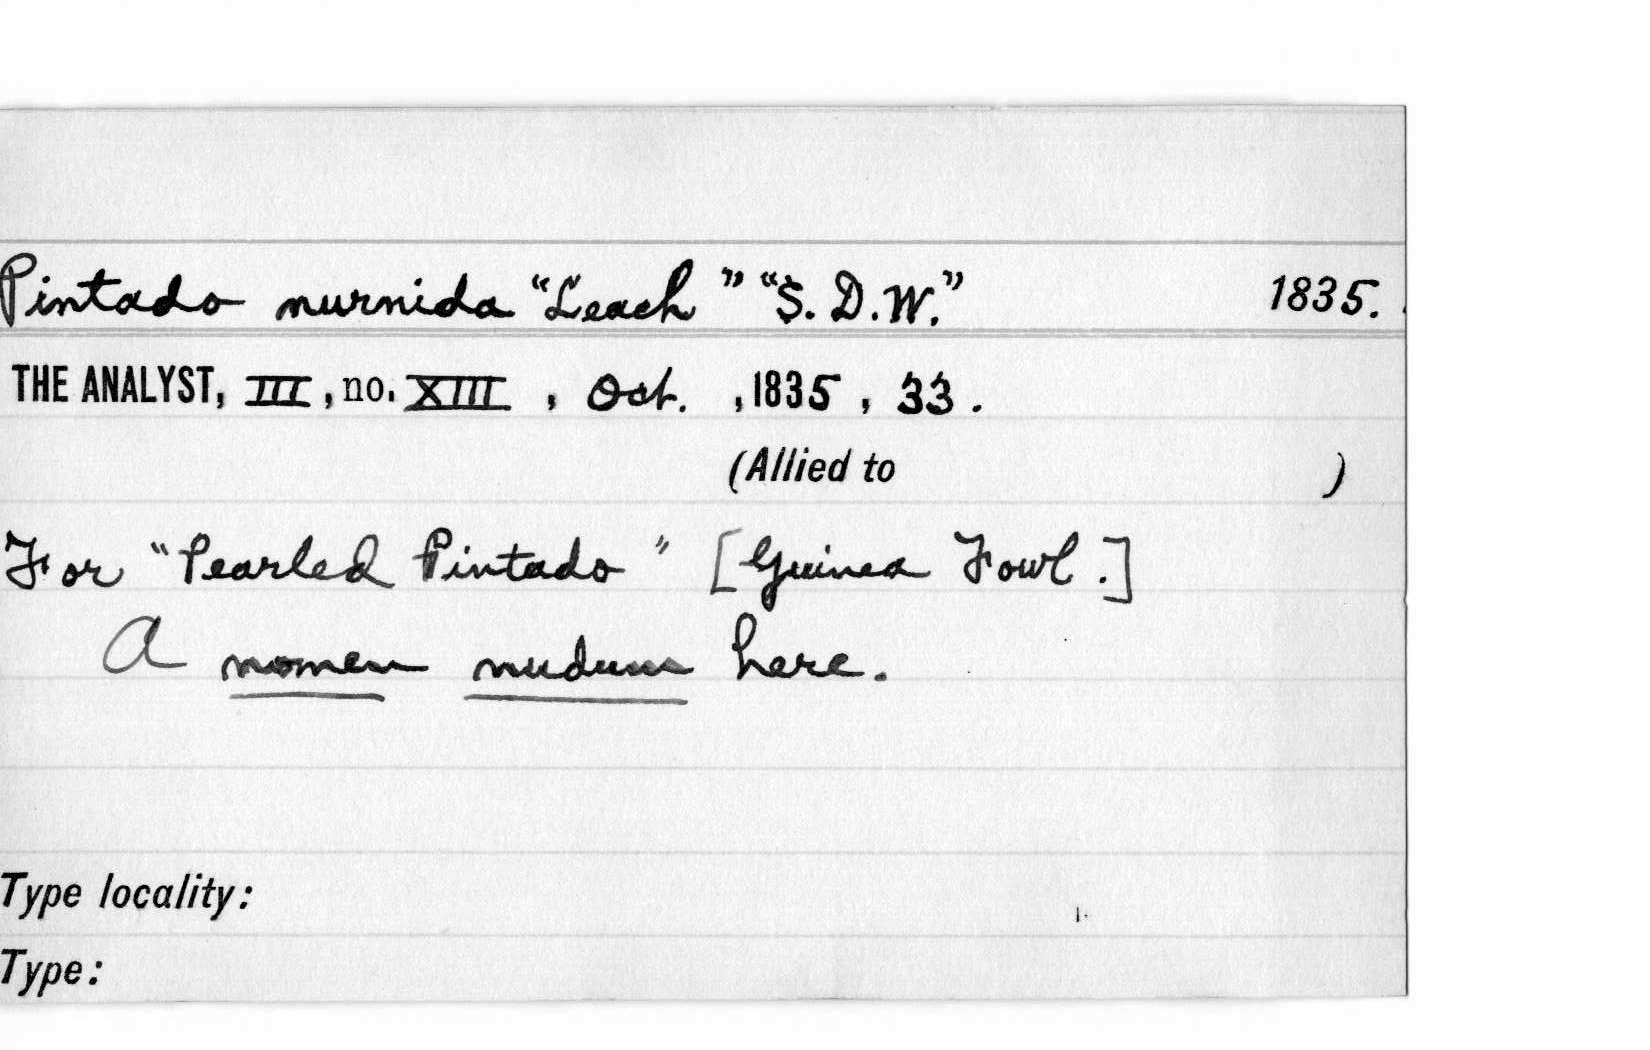 Pintado nurnida "Leach" "S. D. W." 1835.
THE ANALYST, III, no. XIII, Oct., 1835, 33.
(Allied to )
For "Pearled Pintado" [Guinea Fowl.]
A nomen nudum here.
Type locality:
Type: